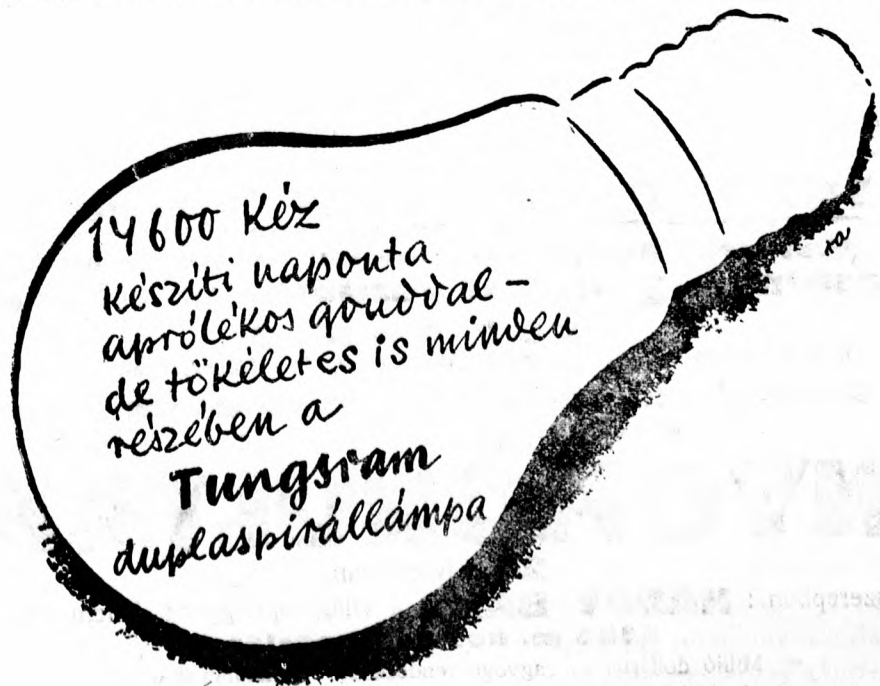 14600 kéz
készíti naponta
aprólékos gonddal –
de tökéletes is minden
részében a
Tungsram
duplaspirállámpa
ra
szerepben: